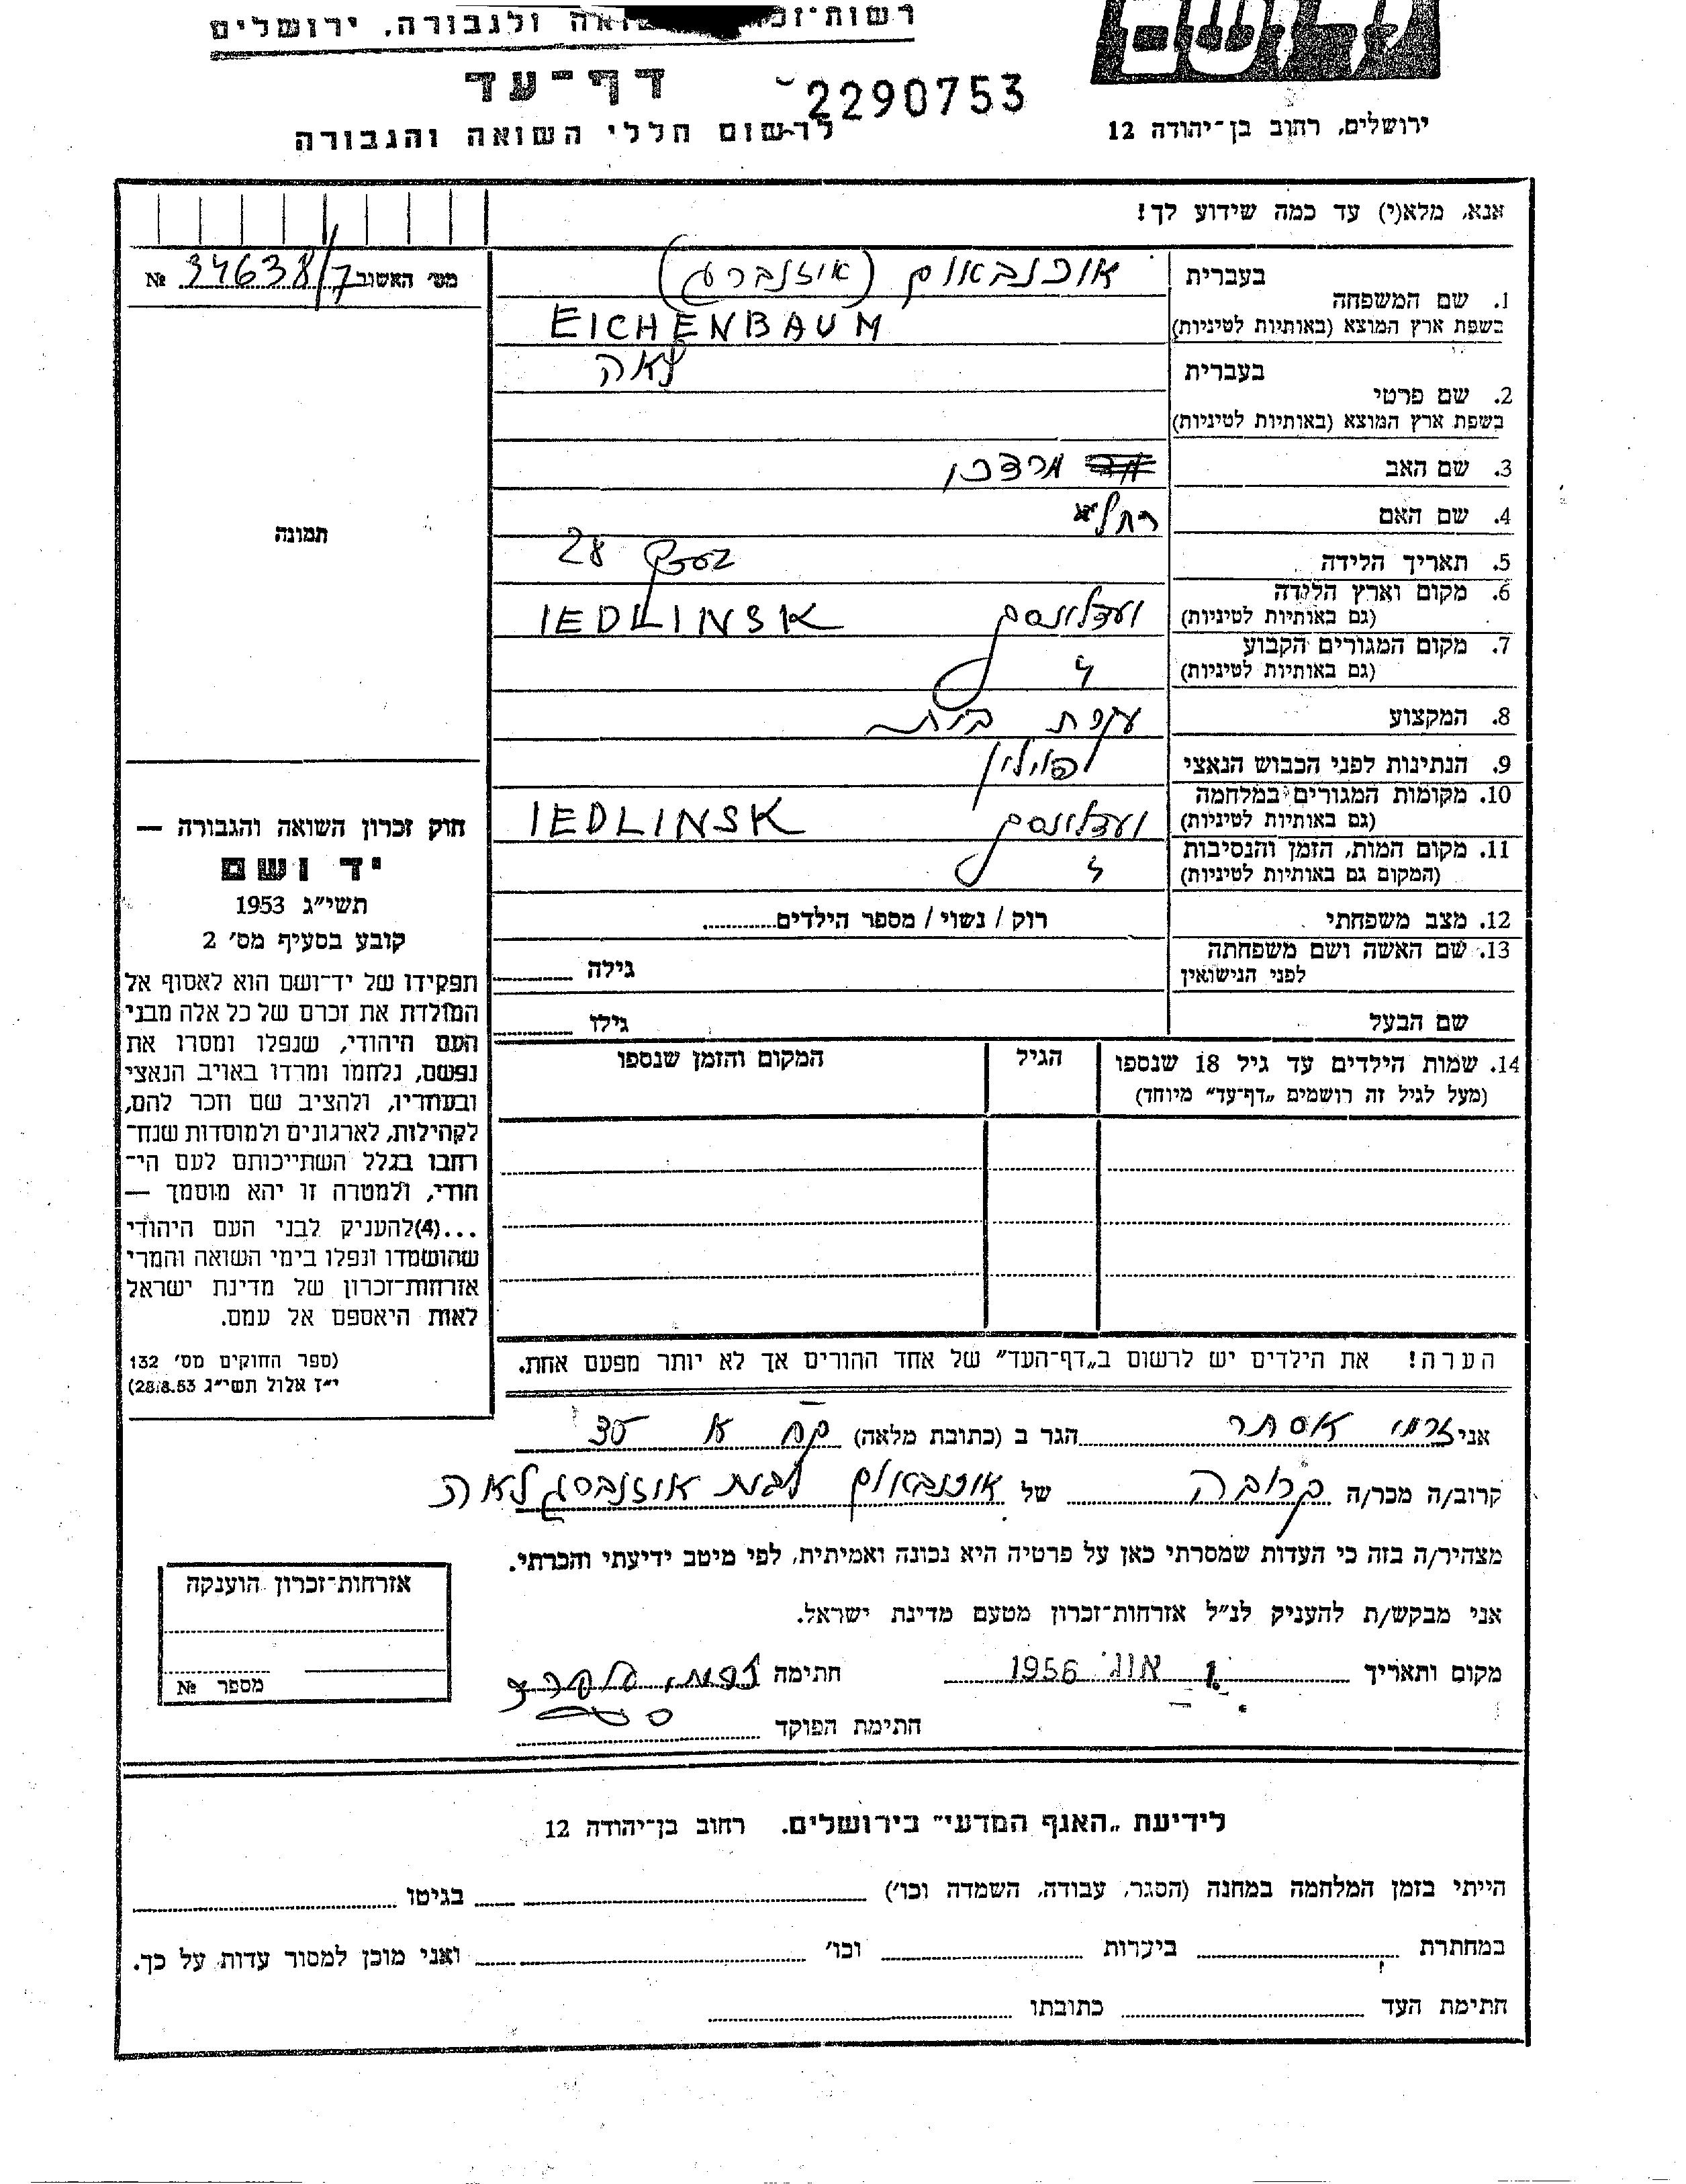 ולגבורה, ירושלים
דף־עד
2290753
לרשום חללי השואה והגבורה
ירושלים, רחוב בן־יהודה 12
אנא, מלא(י) עד כמה שידוע לך!
מס׳ האשוב 34638/7 №
בעברית
1. שם המשפחה
בשפת ארץ המוצא (באותיות לטיניות)
אוכנבאום (אוזנברג)
EICHENBAUM
בעברית
2. שם פרטי
בשפת ארץ המוצא (באותיות לטיניות)
לאה
3. שם האב
מרדכי
4. שם האם
רחל
5. תאריך הלידה
28
6. מקום וארץ הלידה
(גם באותיות לטיניות)
IEDLINSK
7. מקום המגורים הקבוע
(גם באותיות לטיניות)
8. המקצוע
עקרת בית
9. הנתינות לפני הכבוש הנאצי
פולין
10. מקומות המגורים במלחמה
(גם באותיות לטיניות)
IEDLINSK
11. מקום המות, הזמן והנסיבות
(המקום גם באותיות לטיניות)
12. מצב משפחתי
רוק / נשוי / מספר הילדים
13. שם האשה ושם משפחתה
לפני הנישואין
גילה
שם הבעל
גילו
14. שמות הילדים עד גיל 18 שנספו
(מעל לגיל זה רושמים „דף־עד״ מיוחד)
הגיל
המקום והזמן שנספו
תמונה
חוק זכרון השואה והגבורה —
יד ושם
תשי״ג 1953
קובע בסעיף מס׳ 2
תפקידו של יד־ושם הוא לאסוף אל
המולדת את זכרם של כל אלה מבני
העם היהודי, שנפלו ומסרו את
נפשם, נלחמו ומרדו באויב הנאצי
ובעוזריו, ולהציב שם וזכר להם,
לקהילות, לארגונים ולמוסדות שנח־
רחבו בגלל השתייכותם לעם הי־
הודי, ולמטרה זו יהא מוסמך —
...(4)להעניק לבני העם היהודי
שהושמדו ונפלו בימי השואה והמרי
אזרחות־זכרון של מדינת ישראל
לאות היאספם אל עמם.
(ספר החוקים מס׳ 132
י״ז אלול תשי״ג 28.8.53)
הערה! את הילדים יש לרשום ב„דף־העד״ של אחד ההורים אך לא יותר מפעם אחת.
אני אסתר הגר ב (כתובת מלאה)
קרוב/ה מכר/ה קרובה של אוכנבאום לבית אוזנברג לאה
מצהיר/ה בזה כי העדות שמסרתי כאן על פרטיה היא נכונה ואמיתית, לפי מיטב ידיעתי והכרתי.
אני מבקש/ת להעניק לנ״ל אזרחות־זכרון מטעם מדינת ישראל.
מקום ותאריך 1. אוג׳ 1956 חתימה
חתימת הפוקד
אזרחות־זכרון הוענקה
מספר №
לידיעת „האגף המדעי״ בירושלים. רחוב בן־יהודה 12
הייתי בזמן המלחמה במחנה (הסגר, עבודה, השמדה וכו׳) בגיטו
במחתרת ביערות וכו׳ ואני מוכן למסור עדות על כך.
חתימת העד כתובתו